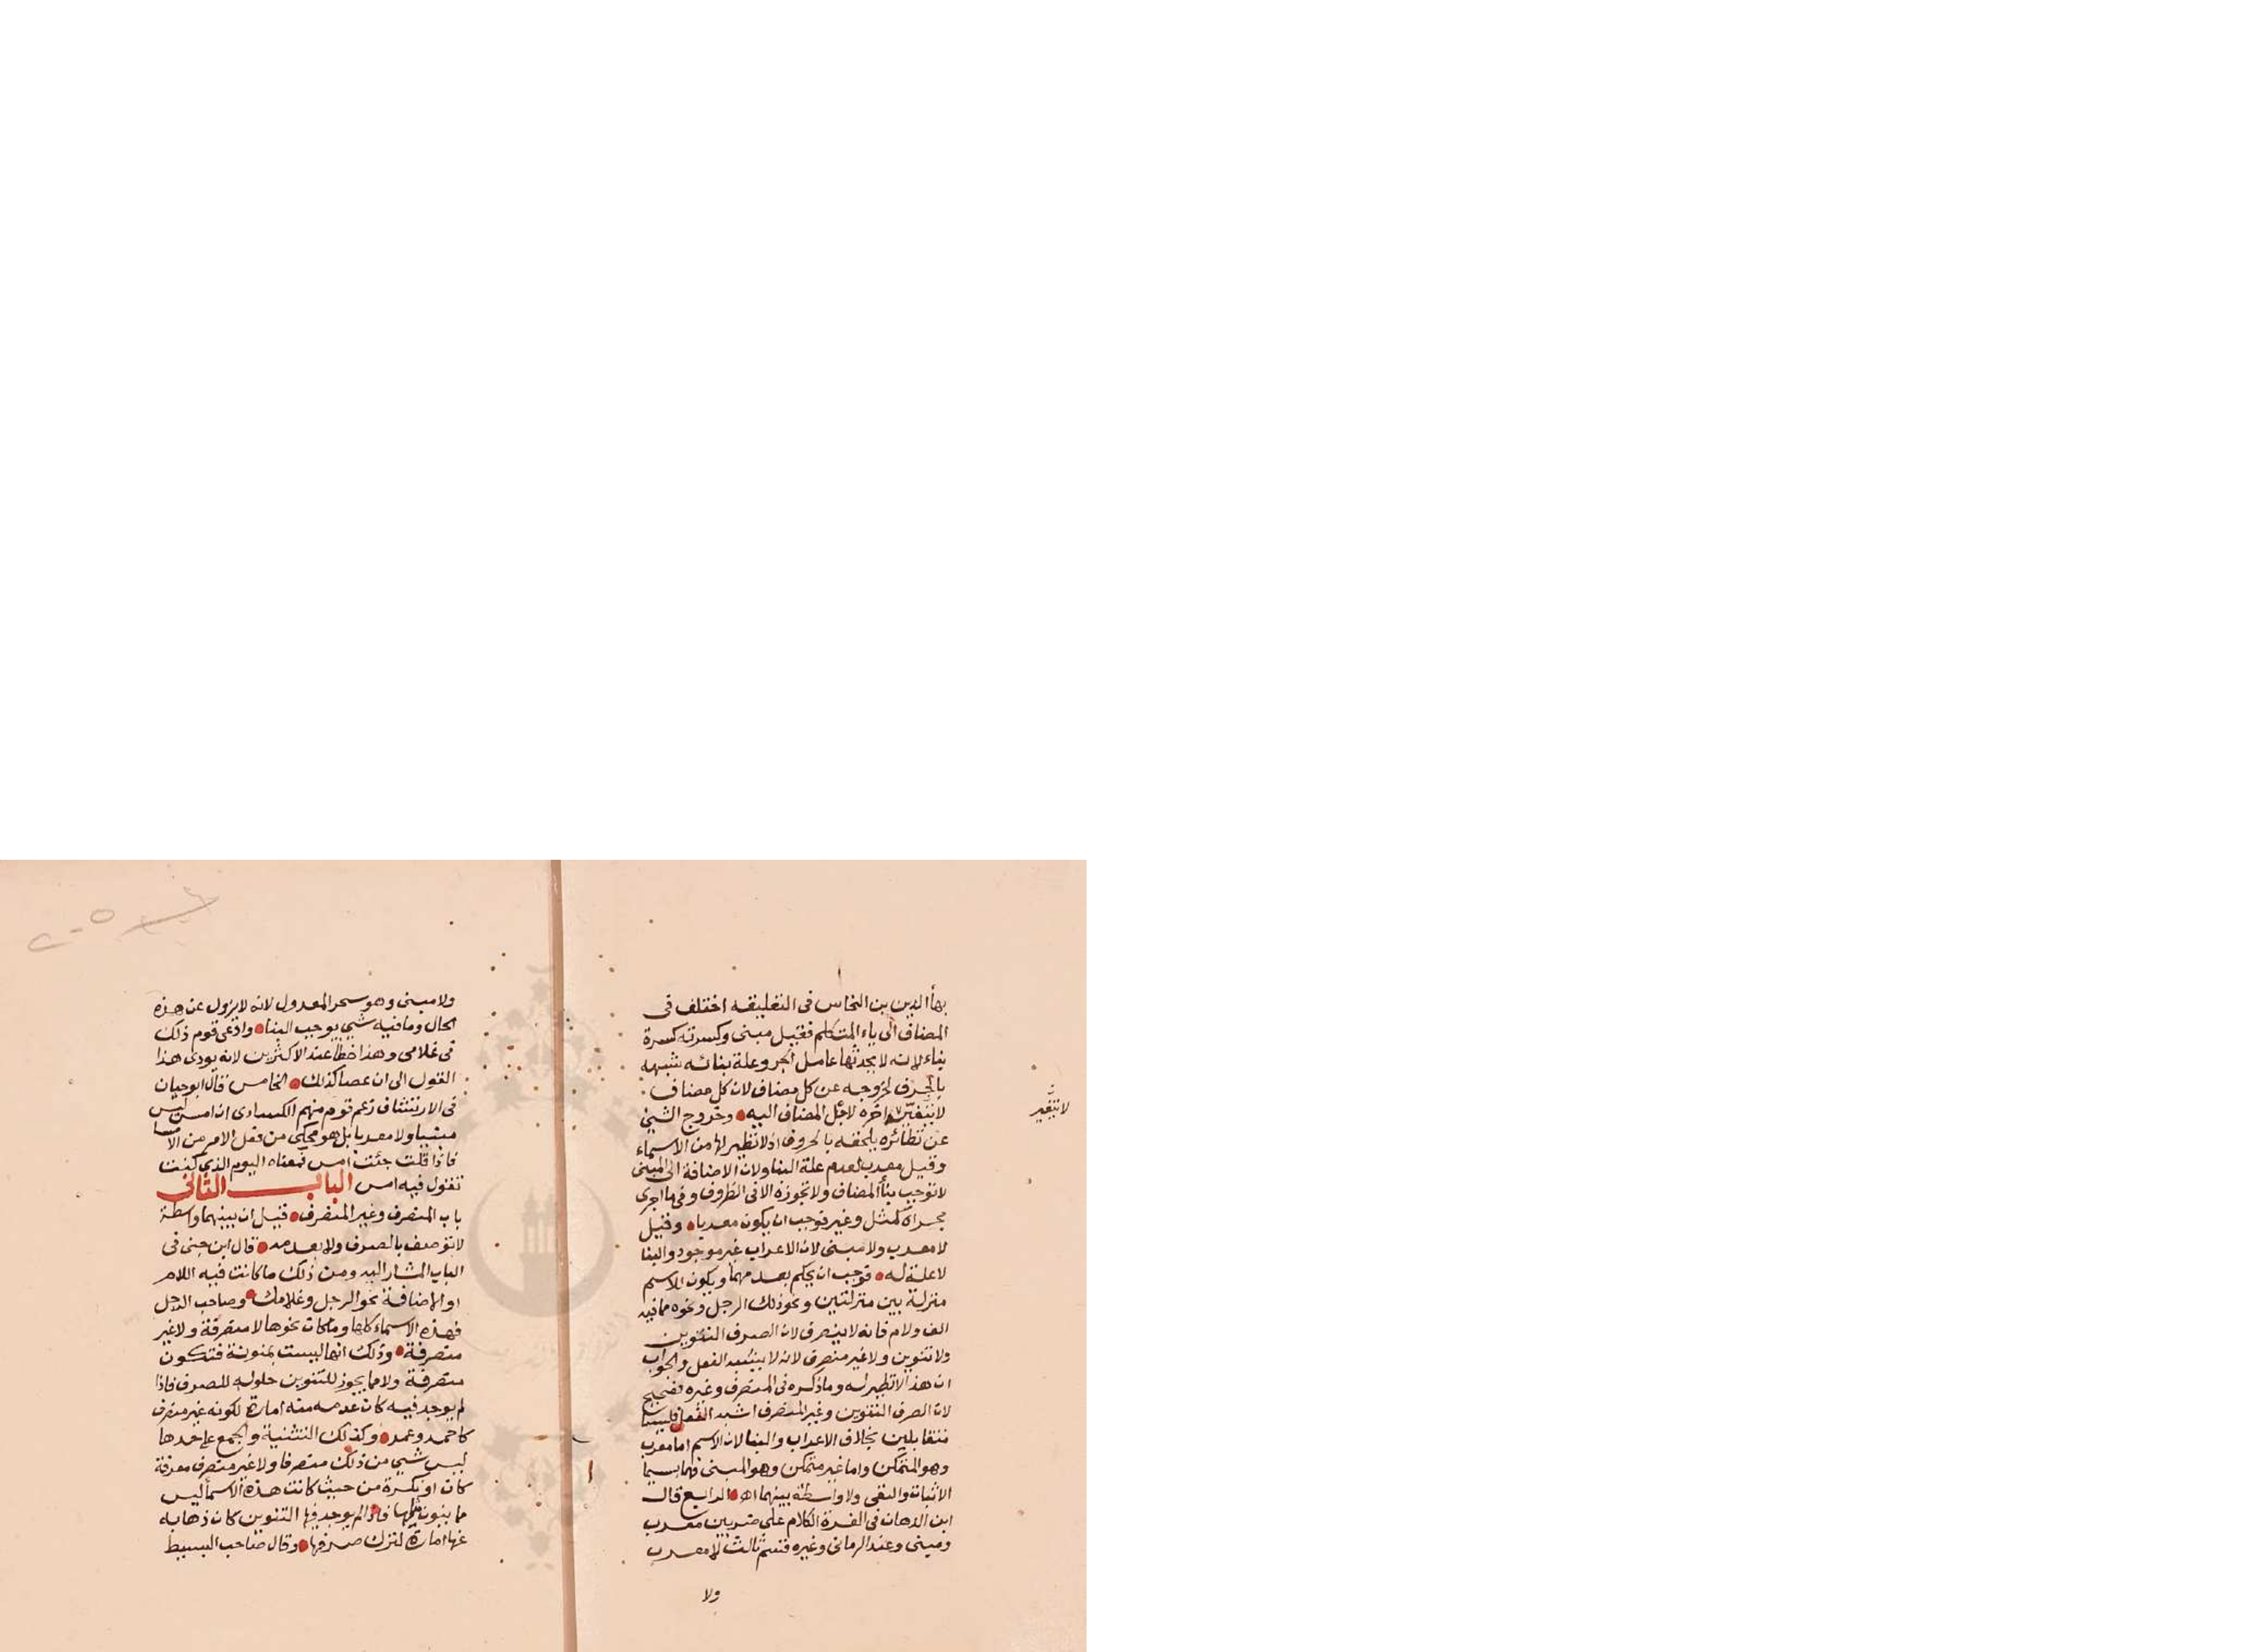 بهأ الدين بن النحاس فى التعليقه اختلف فى
المضاف الى ياء المتكلم فقيل مبنى وكسرته كسرة
بناء لانه لا يحدثها عامل الجر وعلة بنائه شبهه
بالحرف لخروجه عن كل مضاف لان كل مضاف
لا يتغير اخره لاجل المضاف اليه وخروج الشئ
عن نظائره يلحقه بالحروف اذ لا نظير لها من الاسماء
وقيل معرب لعدم علة البنا ولان الاضافة الى المبنى
لا توجب بنأ المضاف ولا تجوزه الا فى الظروف وفيما اجرى
مجراه كمثل وغير فوجب ان يكون معربا وقيل
لا معرب ولا مبنى لان الاعراب غير موجود والبنا
لا علة له فوجب ان يحكم بعدمهما ويكون للاسم
منزلة بين منزلتين ونحو ذلك الرجل ونحوه مما فيه
الف ولام فانه لا ينصرف لان الصرف التنوين
ولا تنوين ولا غير منصرف لانه لا يشبه الفعل والجواب
ان هذا لا نظير له وما ذكره فى المنصرف وغيره فصحيح
لان الصرف التنوين وغير المنصرف اشبه الفعل فليسا
متقابلين بخلاف الاعراب والبنا لان الاسم اما معرب
وهو المتمكن واما غير متمكن وهو المبنى فهما قسيما
الاثبات والنفى ولا واسطة بينهما اهـ الرابع قال
ابن الدهان فى الغرة الكلام على ضربين معرب
ومبنى وعند الرمانى وغيره قسم ثالث لا معرب
ولا
لا يتغير
ولا مبنى وهو سحر المعدول لانه لا يزول عن هذه
الحال وما فيه شئ يوجب البنا وادعى قوم ذلك
فى غلامى وهذا خطأ عند الاكثرين لانه يودى هذا
القول الى ان عصا كذلك الخامس قال ابو حيان
فى الارتشاف زعم قوم منهم الكسداى ان امس ليس
مبنيا ولا معربا بل هو محكى من فعل الامر من الامسا
فاذا قلت جئت امس فمعناه اليوم الذى كنت
تقول فيه امس الباب الثانى
باب المنصرف وغير المنصرف قيل ان بينهما واسطة
لا توصف بالصرف ولا بعدمه قال ابن جنى فى
الباب المشار اليه ومن ذلك ما كانت فيه اللام
او الاضافة نحو الرجل وغلامك وصاحب الرجل
فهذه الاسماء كلها وما كان نحوها لا منصرفة ولا غير
منصرفة وذلك انها ليست بمنونة فتكون
منصرفة ولا مما يجوز للتنوين حلوله للصرف فاذا
لم يوجد فيه كان عدمه منه امارة لكونه غير منصرف
كاحمد وعمر وكذلك التثنية والجمع على حدها
ليس شئ من ذلك منصرفا ولا غير منصرف معرفة
كان او نكرة من حيث كانت هذه الاسما ليس
ما ينون مثلها فاذا لم يوجد فيها التنوين كان ذهابه
عنها امارة لترك صرفها وقال صاحب البسيط